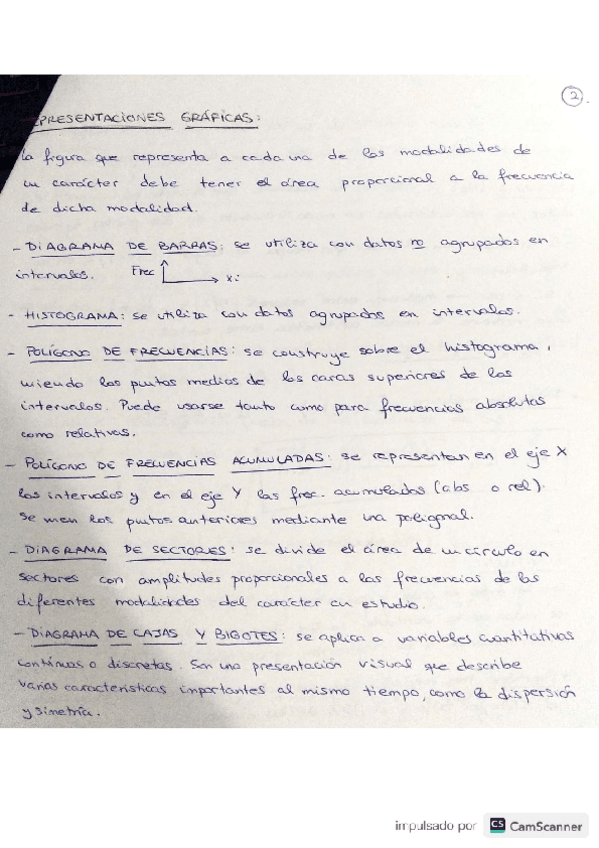 2.
EPRESENTACIONES GRÁFICAS:
La figura que representa a cada una de las modalidades de
un carácter debe tener el área proporcional a la frecuencia
de dicha modalidad.
- DIAGRAMA DE BARRAS: se utiliza con datos no agrupados en
intervalos. Frec xi
- HISTOGRAMA: se utiliza con datos agrupados en intervalos.
- POLÍGONO DE FRECUENCIAS: se construye sobre el histograma,
uniendo los puntos medios de las caras superiores de los
intervalos. Puede usarse tanto como para frecuencias absolutas
como relativas.
- POLÍGONO DE FRECUENCIAS ACUMULADAS: se representan en el eje X
los intervalos y en el eje Y las frec. acumuladas (abs o rel).
Se unen los puntos anteriores mediante una poligonal.
- DIAGRAMA DE SECTORES: se divide el área de un círculo en
sectores con amplitudes proporcionales a las frecuencias de las
diferentes modalidades del carácter en estudio.
- DIAGRAMA DE CAJAS Y BIGOTES: se aplica a variables cuantitativas
continuas o discretas. Son una presentación visual que describe
varias características importantes al mismo tiempo, como la dispersión
y simetría.
impulsado por CS CamScanner